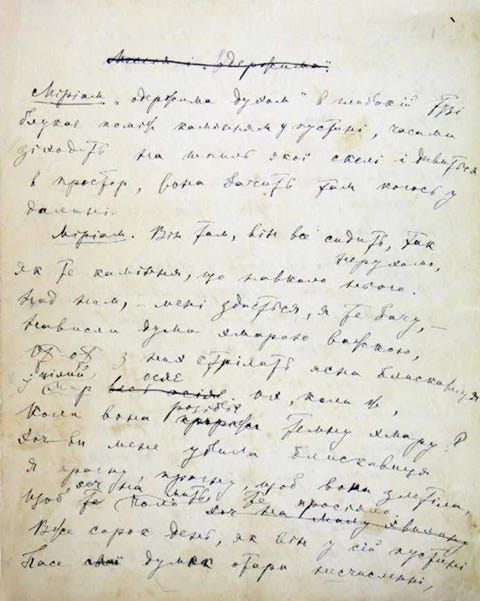 Месія і „Одержима".
Міріам „одержима духом" в глибокій тузі
блукає поміж камінням у пустині, часами
зіходить на шпиль якої скелі і дивиться
в простор, вона бачить там когось у
далині.
Міріам. Він там, він все сидить, так
нерухомо,
як те каміння, що навколо нього.
Над ним, – мені здається, я те бачу, –
нависли думи хмарою важкою,
от-от з них стрілить ясна блискавиця
і цілий мир осяє Ох, коли ж,
коли вона розіб'є темну хмару?
хоч би мене убила блискавиця
я прагну, прагну, щоб вона злетіла,
щоб те чоло хоч на мить
хоч на малу хвилину
Вже сорок день, як він у сій пустині
пасе думок отари незчисленні,